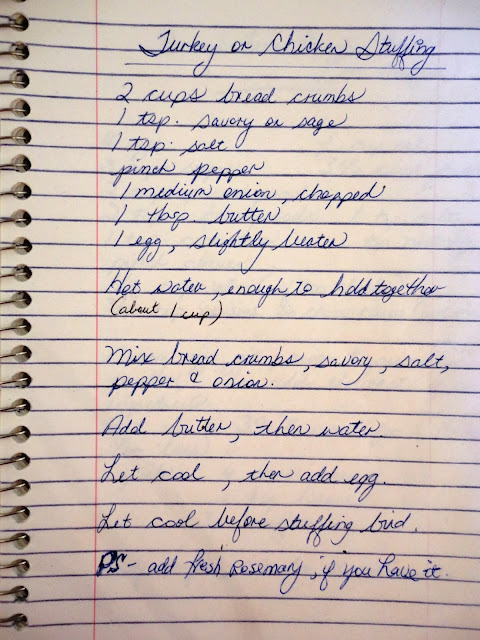 Turkey or Chicken Stuffing
2 cups bread crumbs
1 tsp. savory or sage
1 tsp. salt
pinch pepper
1 medium onion, chopped
1 tbsp. butter
1 egg, slightly beaten
Hot water, enough to hold together
(about 1 cup)
Mix bread crumbs, savory, salt,
pepper & onion.
Add butter, then water.
Let cool, then add egg.
Let cool before stuffing bird.
PS- add fresh Rosemary, if you have it.